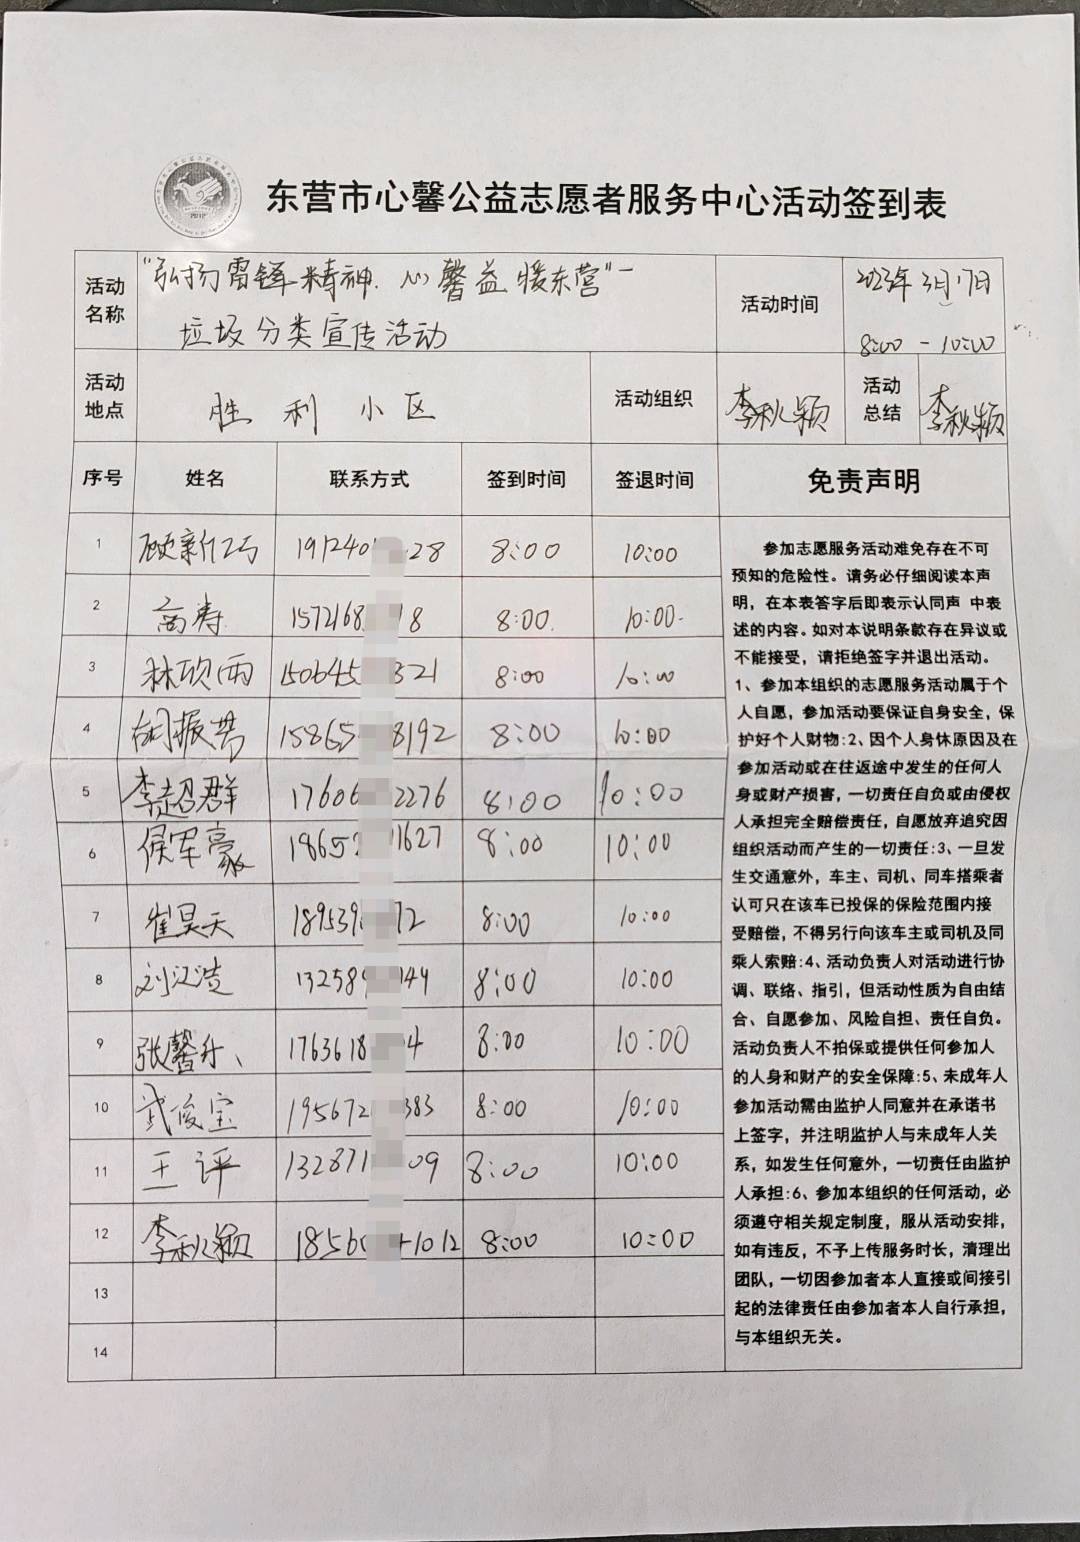 2012
东营市心馨公益志愿者服务中心活动签到表
活动名称
"弘扬雷锋精神.心馨益暖东营"一
垃圾分类宣传活动
活动时间
2023年3月17日
8:00 - 10:00
活动地点
胜利小区
活动组织
李秋颖
活动总结
李秋颖
序号 姓名 联系方式 签到时间 签退时间 免责声明
1 顾新 191240 28 8:00 10:00
2 高涛 1572168 18 8:00 10:00
3 林 雨 150645 321 8:00 10:00
4 胡振 15865 8192 8:00 10:00
5 李超群 17606 2276 8:00 10:00
6 侯军豪 18652 1627 8:00 10:00
7 崔昊天 189539 72 8:00 10:00
8 刘汉浩 132589 149 8:00 10:00
9 张馨 1763618 4 8:00 10:00
10 武俊宝 195672 383 8:00 10:00
11 王评 132871 09 8:00 10:00
12 李秋颖 1856 1012 8:00 10:00
13
14
参加志愿服务活动难免存在不可
预知的危险性。请务必仔细阅读本声
明，在本表答字后即表示认同声 中表
述的内容。如对本说明条款存在异议或
不能接受，请拒绝签字并退出活动。
1、参加本组织的志愿服务活动属于个
人自愿，参加活动要保证自身安全，保
护好个人财物:2、因个人身休原因及在
参加活动或在往返途中发生的任何人
身或财产损害，一切责任自负或由侵权
人承担完全赔偿责任，自愿放弃追究因
组织活动而产生的一切责任:3、一旦发
生交通意外，车主、司机、同车搭乘者
认可只在该车已投保的保险范围内接
受赔偿，不得另行向该车主或司机及同
乘人索赔:4、活动负责人对活动进行协
调、联络、指引，但活动性质为自由结
合、自愿参加、风险自担、责任自负。
活动负责人不拍保或提供任何参加人
的人身和财产的安全保障:5、未成年人
参加活动需由监护人同意并在承诺书
上签字，并注明监护人与未成年人关
系，如发生任何意外，一切责任由监护
人承担:6、参加本组织的任何活动，必
须遵守相关规定制度，服从活动安排，
如有违反，不予上传服务时长，清理出
团队，一切因参加者本人直接或间接引
起的法律责任由参加者本人自行承担，
与本组织无关。